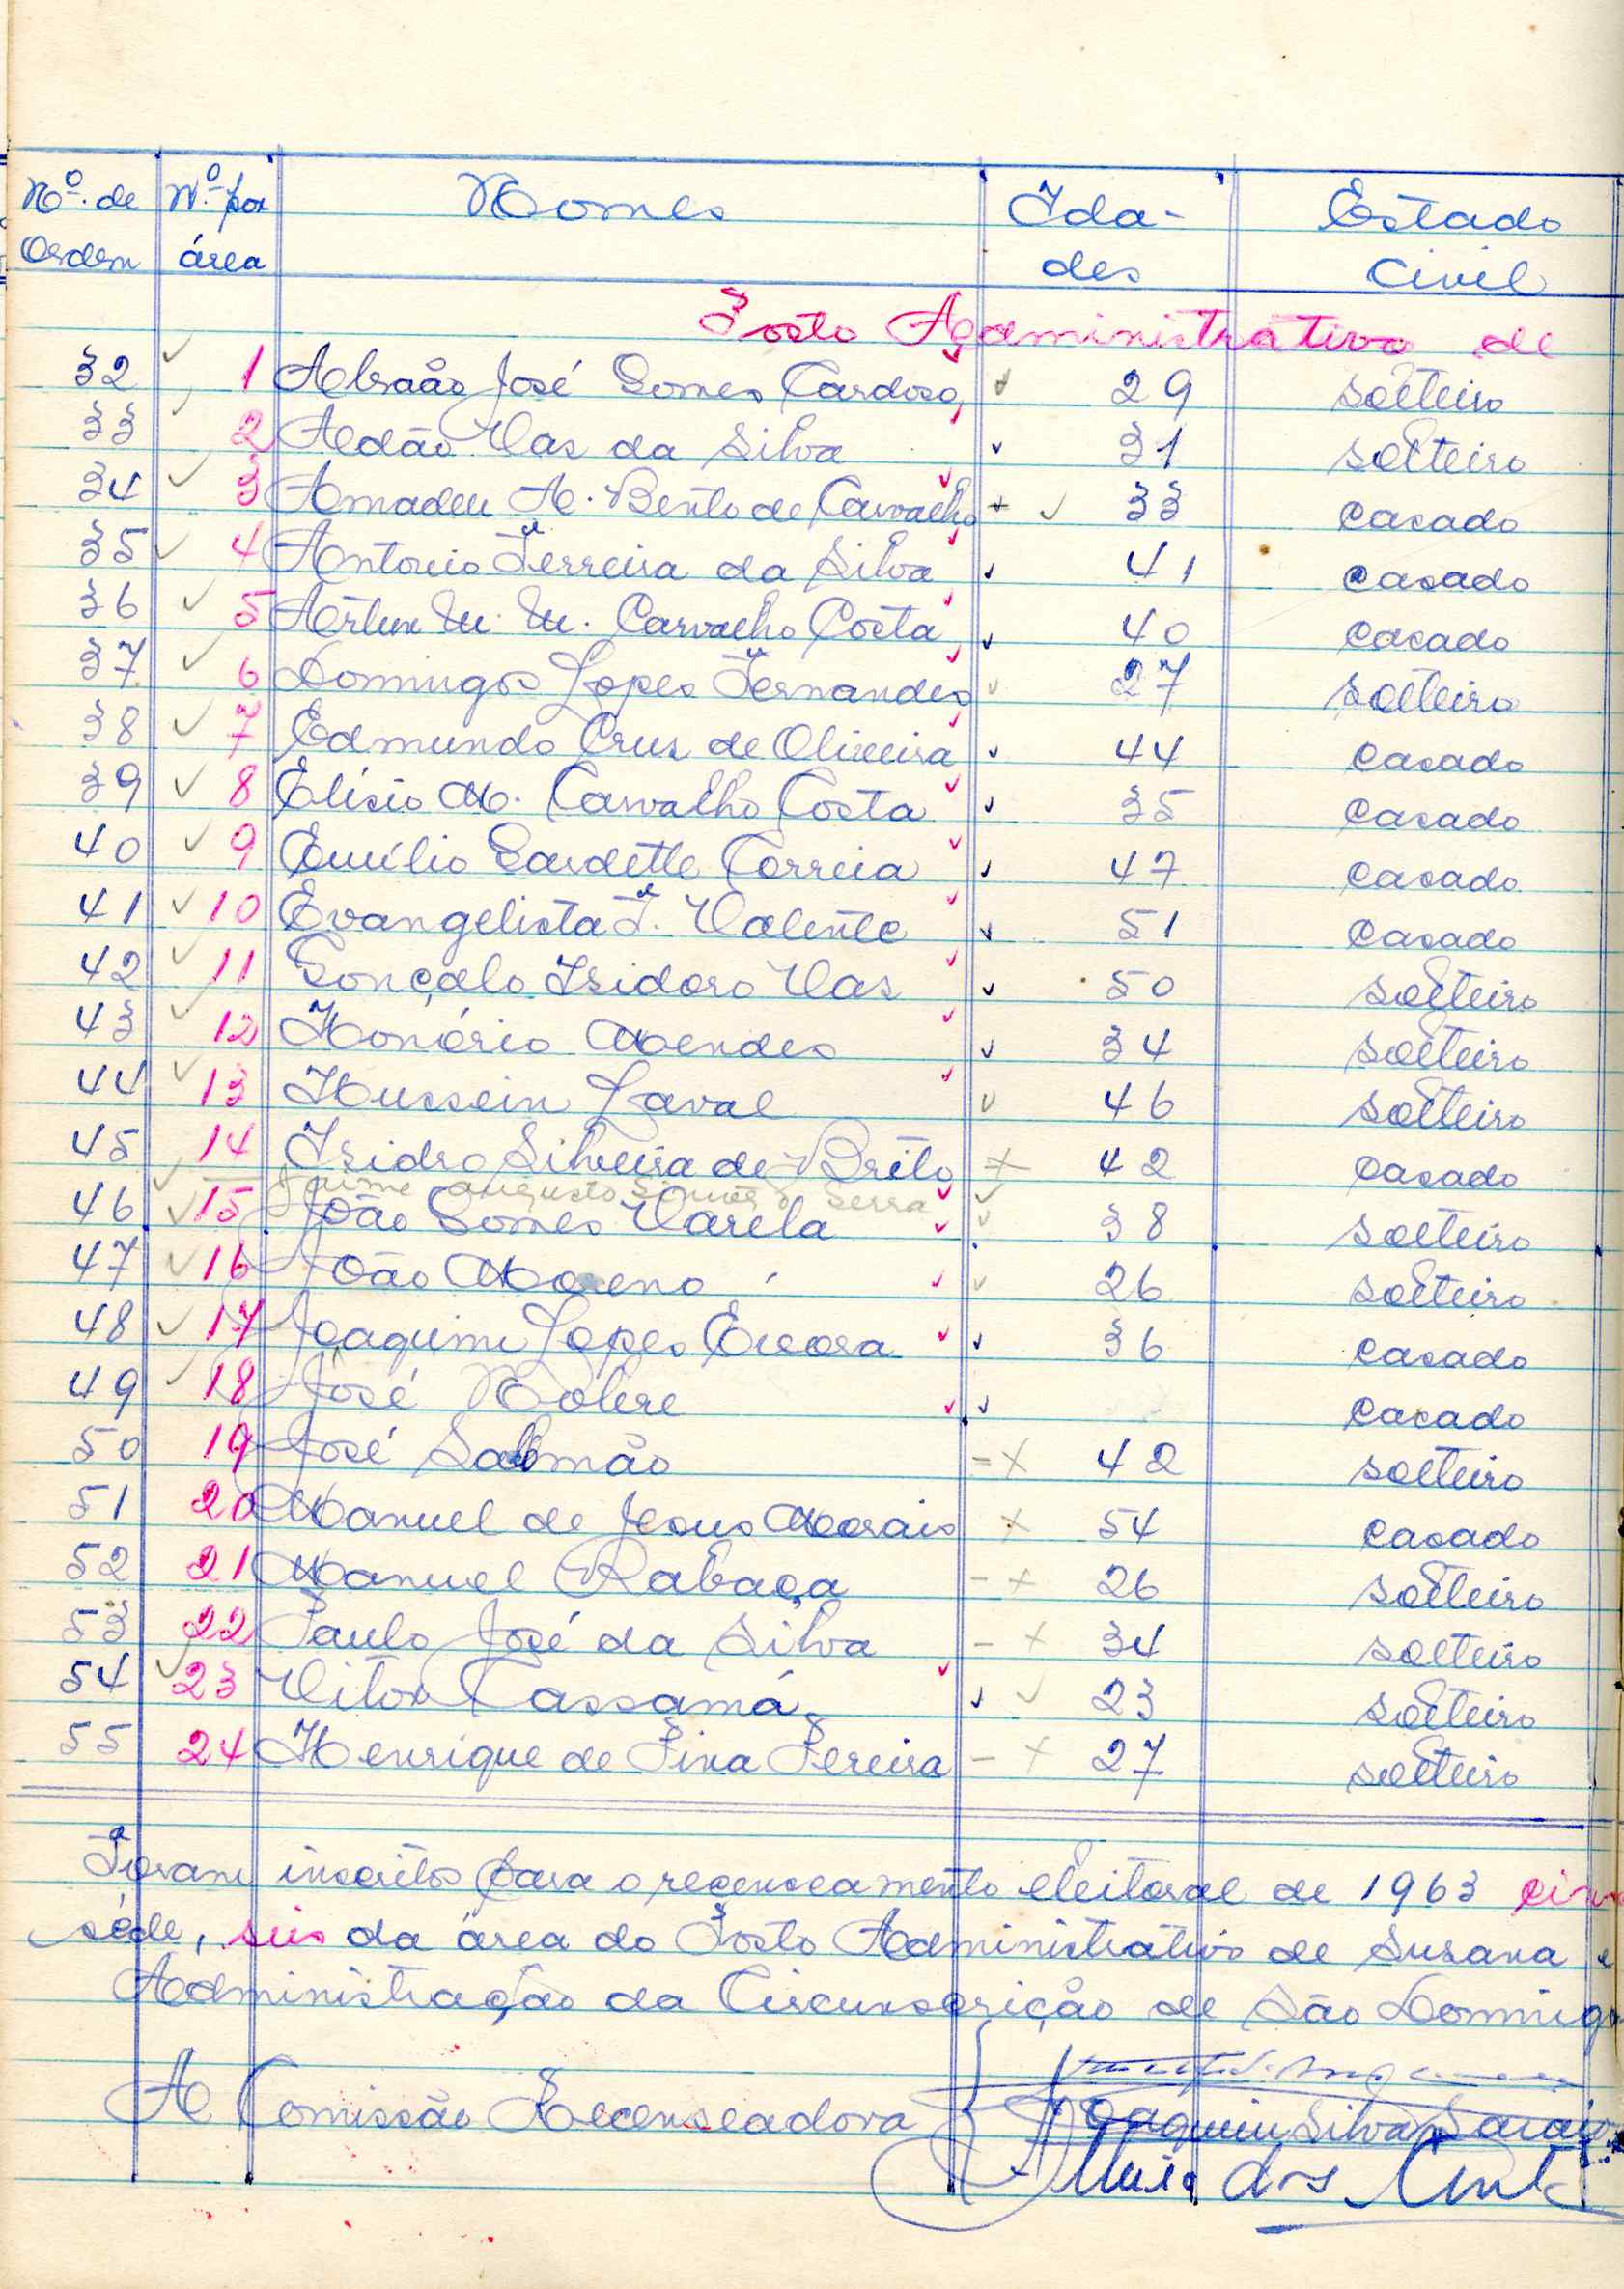 Nº. de Nº. por Nomes Ida- Estado
Ordem área des Civil
Posto Administrativo de
32 1 Abraão José Gomes Cardoso 29 solteiro
33 2 Adão Vas da Silva 31 solteiro
34 3 Amadeu A. Bento de Carvalho 33 casado
35 4 Antonio Ferreira da Silva 41 casado
36 5 Artur M. M. Carvalho Costa 40 casado
37 6 Domingos Lopes Fernandes 27 solteiro
38 7 Edmundo Cruz de Oliveira 44 casado
39 8 Elísio M. Carvalho Costa 35 casado
40 9 Emílio Gardette Correia 47 casado
41 10 Evangelista F. Valente 51 casado
42 11 Gonçalo Isidoro Vas 50 solteiro
43 12 Honório Mendes 34 solteiro
44 13 Hussein Laval 46 solteiro
45 14 Isidro Silveira de Brito 42 casado
Jaime Augusto Serra
46 15 João Gomes Varela 38 solteiro
47 16 João Moreno 26 solteiro
48 17 Joaquim Lopes Évora 36 casado
49 18 José Nobre casado
50 19 José Salomão 42 solteiro
51 20 Manuel de Jesus Morais 54 casado
52 21 Manuel Rabaça 26 solteiro
53 22 Paulo José da Silva 34 solteiro
54 23 Vitor Cassamá 23 solteiro
55 24 Henrique de Pina Pereira 27 solteiro
Foram inscritos para o recenseamento eleitoral de 1963
séde, seis da área do Posto Administrativo de Susana e
Administração da Circunscrição de São Domingo
A Comissão Recenseadora
Joaquim Silva